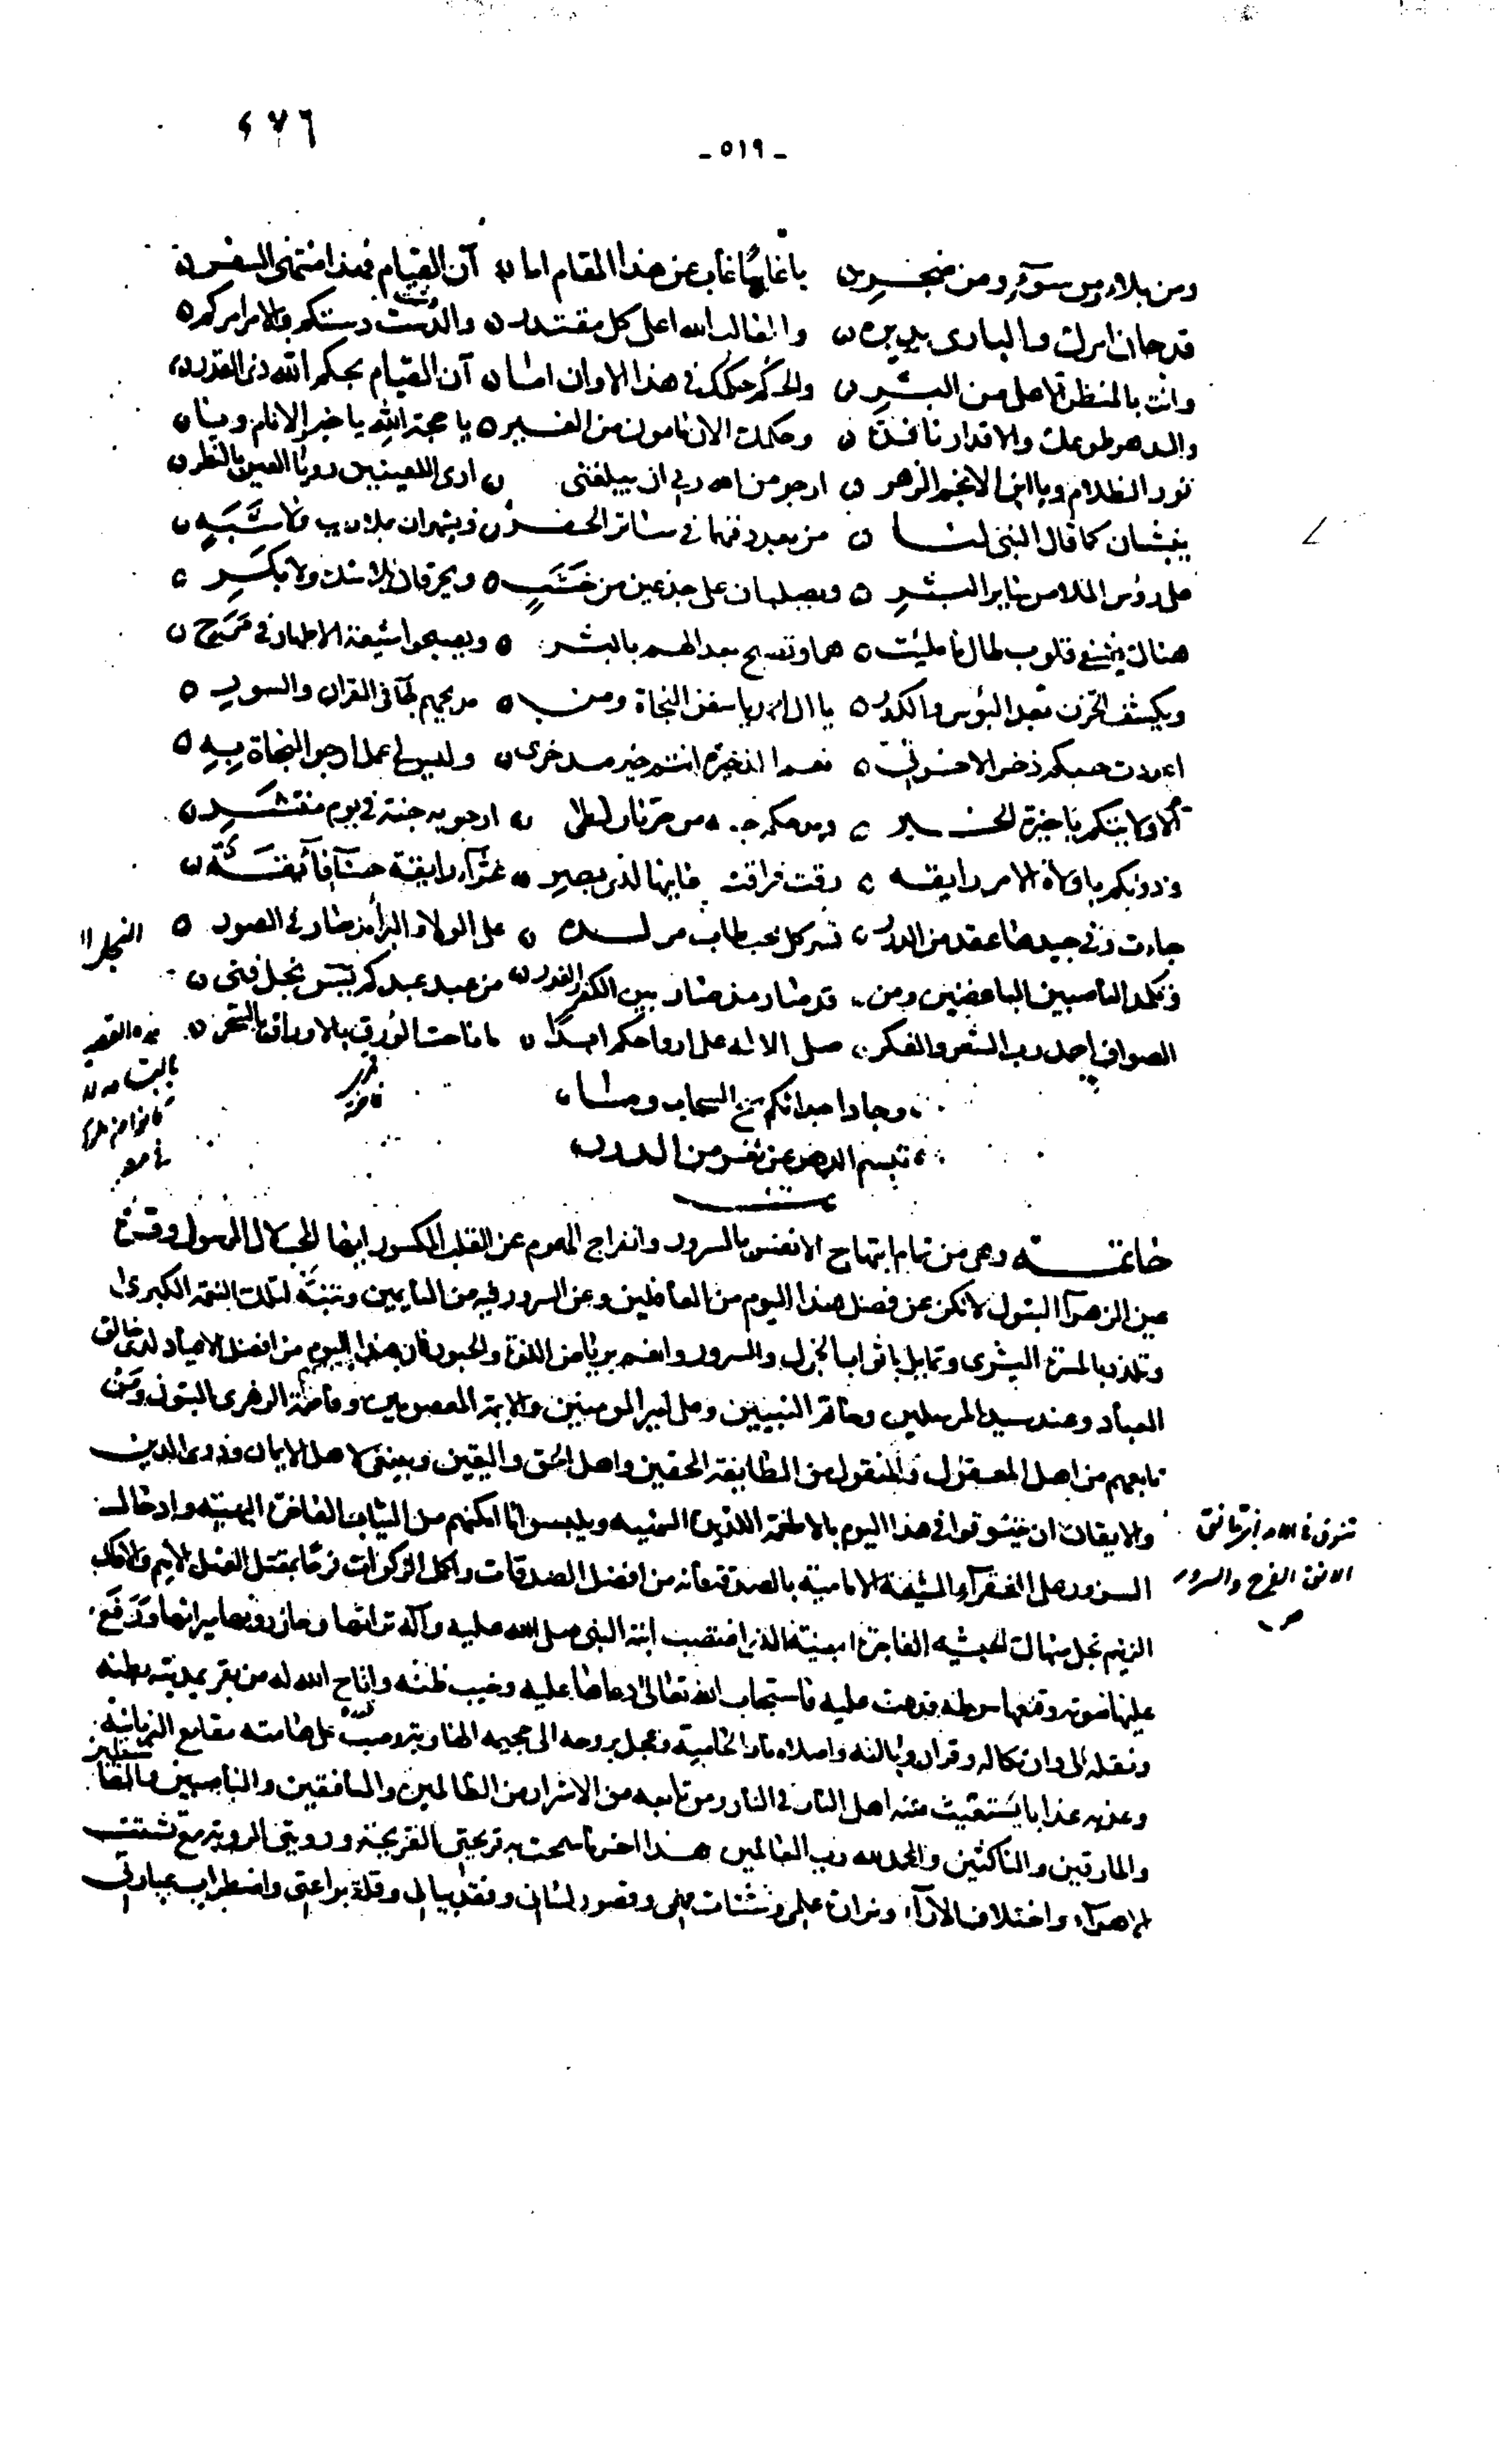 ٤٧٦
- ٥١٩ -
ومن بلاء ومن سوء ومن ضجر ٥ يا غايبًا غاب عن هذا المقام اما ٥ آن القيام فهذا منتهى السفر ٥
قد حان امرك والباري يدبره ٥ والغالب الله اعلى كل مقتدر ٥ والدست دستكم والامر امركم ٥
وانت بالمنظر الاعلى من البشر ٥ والحكم حكمك في هذا الاوان اما ٥ آن القيام بحكم الله ذي القدر ٥
والدهر طوعك والاقدار نافذة ٥ وحكمك الان مامون من الغير ٥ يا حجة الله يا خير الانام ويا ٥
نور الظلام ويا ابن الانجم الزهر ٥ ارجو من الله ربي ان يبلغني ٥ ارى اللعينين رويا العين بالنظر ٥
ينبشان كما قال النبي لنا ٥ من بعد دفنهما في سائر الحفر ٥ ويشهران بلا ريب ولا شبه ٥
على رؤس الملا من سائر البشر ٥ ويصلبان على جذعين من خشب ٥ ويحرقان بلا شك ولا نكر ٥
هناك تشفى قلوب طال ما ملئت ٥ هما وتصبح بعد الهم بالبشر ٥ ويصبحوا شيعة الاطهار في فرح ٥
ويكشف الحزن بعد البؤس والكدر ٥ يا ال احمد يا سفن النجاة ومن ٥ مديحهم جاء في القران والسور ٥
اعددت حبكم ذخر الاخرتي ٥ نعم الذخيرة انتم خير مدخري ٥ وليس لي عمل ارجو النجاة به ٥
الا ولايتكم يا خيرة الخير ٥ ومدحكم جنة من حر نار لظى ٥ ارجو به جنة في يوم منتشر ٥
ودونكم يا ولاة الامر رايقة ٥ رقت فراقت معانيها لذي بصر ٥ غراء رايقة حسناء فائقة ٥
جاءت وفي جيدها عقد من الدرر ٥ تسر كل محب طاب مولده ٥ على الولاء والبرا مذ صار في الصور ٥
وتكمد الناصبين الباغضين ومن ٥ قد صار مذ صار بين الكفر والغدر ٥ من عبد عبدكم يتس نجل فتى ٥
الصواف احمد رب الشعر والفكر ٥ صلى الاله على ارواحكم ابدًا ٥ ما ناحت الورق بالاوراق بالشجر ٥
وجاد اجداثكم سح السحاب وما ٥
تبسم الروض عن ثغر من الدرر
خاتمة وهي من تمام ابتهاج الانفس بالسرور وانفراج الهموم عن القلب المكسور ايها المحب لال الرسول وقرة
عين الزهراء البتول لا تكن عن فضل هذا اليوم من الغافلين وعن السرور فيه من النايمين وتنبه لتلك النعمة الكبرى
وتلذذ بالمسرة البشرى وتمايل باثواب الجذل والسرور وانعم برياض اللذة والحبور فان هذا اليوم من افضل الاعياد لدى خالق
العباد وعند سيد المرسلين وخاتم النبيين وعلى امير المومنين والايمة المعصومين وفاطمة الزهرى البتول ومن
تابعهم من اهل المعقول والمنقول من الطايفة المحقين واهل الحق واليقين وينبغي لاهل الايمان وذوي الدين
والايقان ان يتنوقوا في هذا اليوم بالاطعمة اللذيذة الهنيه ويلبسوا ما امكنهم من الثياب الفاخرة البهيه وادخال
السرور على الفقراء الشيعة الامامية بالصدقة فانه من افضل الصدقات واكمل الزكوات فرحًا بمقتل العتل الاثيم والافاك
الزنيم نجل صهاك الحبشيه الفاجرة البغية الذي اغتصب ابنة النبي صلى الله عليه واله تراثها وحاز دونها ميراثها ورفع
عليها صوته وقنعها سوطه فدعت عليه فاستجاب الله تعالى دعاءها عليه وخيب ظنه واتاح الله له من بقر بمديته بطنه
ونقله الى دار نكاله وقرار وباله واصلاه نار الحامية وعجل بروحه الى جحيمه الهاوية وصبت على هامته مقامع الزبانية
وعذبه عذابا يستغيث منه اهل النار في النار ومن تابعه من الاشرار من الظالمين والمنافقين والناصبين والقاسطين
والمارقين والناكثين والحمد لله رب العالمين هذا اخر ما سمحت به قريحتي القريحة ورويتي الروية مع تشتت
الاهواء واختلاف الاراء ونزارة علمي وشتات فهمي وقصور لساني وفقد بياني وقلة براعتي واضطراب عبارتي
تنوق في الامر اي تانق
الانق الفرح والسرور
ص